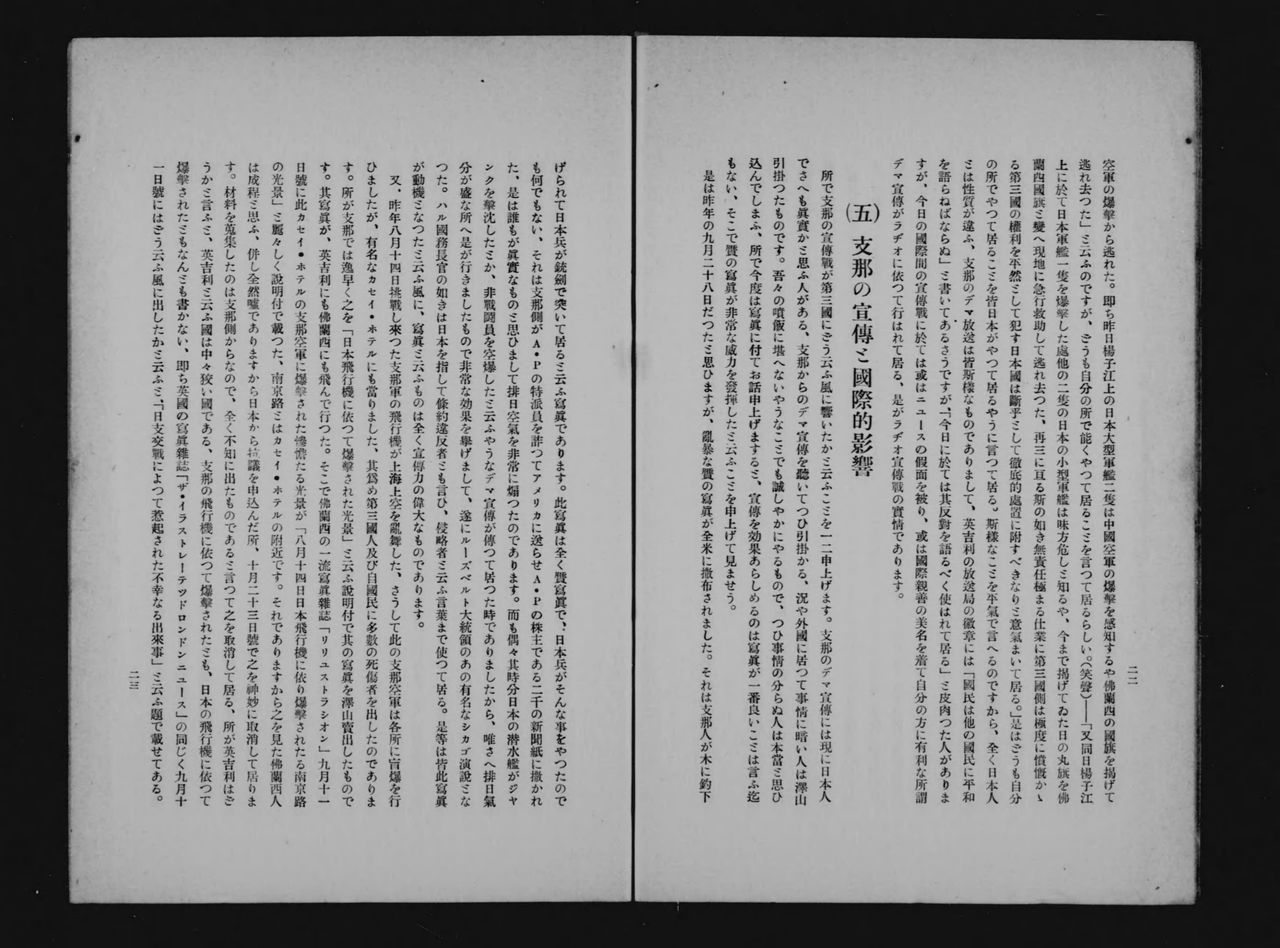 二二
空軍の爆擊から逃れた。卽ち昨日楊子江上の日本大型軍艦二隻は中國空軍の爆擊を感知するや佛蘭西の國旗を揭げて
逃れ去つた」と云ふのですが、どうも自分の所で能くやつて居ることを言つて居るらしい。(笑聲)――「又同日楊子江
上に於て日本軍艦一隻を爆擊した處他の二隻の日本の小型軍艦は味方危しと知るや、今まで揭げてゐた日の丸旗を佛
蘭西國旗と變へ現地に急行救助して逃れ去つた、再三に亙る斯の如き無責任極まる仕業に第三國側は極度に憤慨かゝ
る第三國の權利を平然として犯す日本國は斷乎として徹底的處置に附すべきなりと意氣まいて居る。」是はどうも自分
の所でやつて居ることを皆日本がやつて居るやうに言つて居る。斯樣なことを平氣で言へるのですから、全く日本人
とは性質が違ふ、支那のデマ放送は皆斯樣なものでありまして、英吉利の放送局の徽章には「國民は他の國民に平和
を語らねばならぬ」と書いてあるさうですが「今日に於ては其反對を語るべく使はれて居る」と皮肉つた人がありま
すが、今日の國際間の宣傳戰に於ては或はニュースの假面を被り、或は國際親善の美名を着て自分の方に有利な所謂
デマ宣傳がラヂオに依つて行はれて居る、是がラヂオ宣傳戰の實情であります。
(五) 支那の宣傳と國際的影響
所で支那の宣傳戰が第三國にどう云ふ風に響いたかと云ふことを一二申上げます。支那のデマ宣傳には現に日本人
でさへも眞實かと思ふ人がある、支那からのデマ宣傳を聽いてつひ引掛かる、況や外國に居つて事情に暗い人は澤山
引掛つたものです。吾々の噴飯に堪へないやうなことでも誠しやかにやるもので、つひ事情の分らぬ人は本當と思ひ
込んでしまふ、所で今度は寫眞に付てお話申上げますると、宣傳を効果あらしめるのは寫眞が一番良いことは言ふ迄
もない、そこで贋の寫眞が非常な威力を發揮したと云ふことを申上げて見ませう。
是は昨年の九月二十八日だつたと思ひますが、亂暴な贋の寫眞が全米に撒布されました。それは支那人が木に釣下
げられて日本兵が銃劍で突いて居ると云ふ寫眞であります。此寫眞は全く贋寫眞で、日本兵がそんな事をやつたので
も何でもない、それは支那側がA・Pの特派員を詐つてアメリカに送らせA・Pの株主である二千の新聞紙に撒かれ
た、是は誰もが眞實なものと思ひまして排日空氣を非常に煽つたのであります。而も偶々其時分日本の潜水艦がジヤ
ンクを擊沈したとか、非戰鬪員を空爆したと云ふやうなデマ宣傳が傳つて居つた時でありましたから、唯さへ排日氣
分が盛な所へ是が行きましたもので非常な効果を擧げまして、遂にルーズベルト大統領のあの有名なシカゴ演說とな
つた。ハル國務長官の如きは日本を指して條約違反者とも言ひ、侵略者と云ふ言葉まで使つて居る。是等は皆此寫眞
が動機となつたと云ふ風に、寫眞と云ふものは全く宣傳力の偉大なものであります。
又、昨年八月十四日挑戰し來つた支那軍の飛行機が上海上空を亂舞した、さうして此の支那空軍は各所に盲爆を行
ひましたが、有名なカセイ・ホテルにも當りました、其爲め第三國人及び自國民に多數の死傷者を出したのでありま
す。所が支那では逸早く之を「日本飛行機に依つて爆擊された光景」と云ふ說明付で其の寫眞を澤山賣出したもので
す。其寫眞が、英吉利にも佛蘭西にも飛んで行つた。そこで佛蘭西の一流寫眞雜誌「リリュストラシオン」九月十一
日號に此カセイ・ホテルの支那空軍に爆擊された慘憺たる光景が「八月十四日日本飛行機に依り爆擊されたる南京路
の光景」と麗々しく說明付で載つた、南京路とはカセイ・ホテルの附近です。それでありますから之を見た佛蘭西人
は成程と思ふ、併し全然噓でありますから日本から抗議を申込んだ所、十月二十三日號で之を神妙に取消して居りま
す。材料を蒐集したのは支那側からなので、全く不知に出たものであると言つて之を取消して居る、所が英吉利はど
うかと言ふと、英吉利と云ふ國は中々狡い國である、支那の飛行機に依つて爆擊されたとも、日本の飛行機に依つて
爆擊されたともなんとも書かない、卽ち英國の寫眞雜誌「ザ・イラストレーテツドロンドンニュース」の同じく九月十
一日號にはどう云ふ風に出したかと云ふと、「日支交戰によつて惹起された不幸なる出來事」と云ふ題で載せてある。
二三